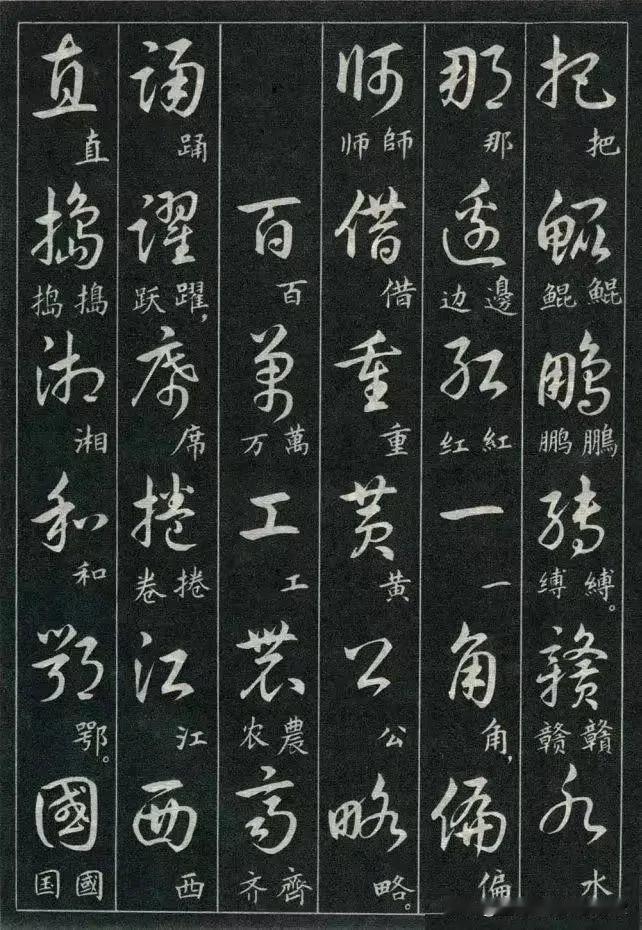 把 把 鯤 鯤 鲲 鵬 鵬 鹏 縛 縛。 缚 贛 贛 赣 水 水
那 那 邊 邊 边 紅 紅 红 一 一 角 角， 偏 偏
師 師 师 借 借 重 重 黄 黄 公 公 略 略。
百 百 萬 萬 万 工 工 農 農 农 齊 齊 齐
踊 踊 躍 躍， 跃 席 席 捲 捲 卷 江 江 西 西
直 直 搗 搗 捣 湘 湘 和 和 鄂 鄂。 國 國 国